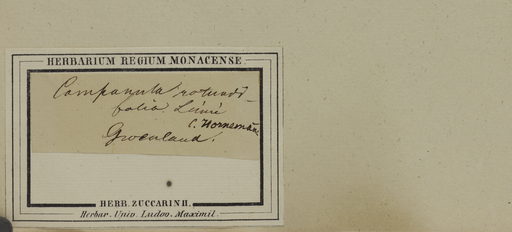 HERBARIUM REGIUM MONACENSE
Campanula rotundi-
folia. Linné
C. Hornemann
Groenland.
HERB. ZUCCARINII.
Herbar. Univ. Ludov. Maximil.